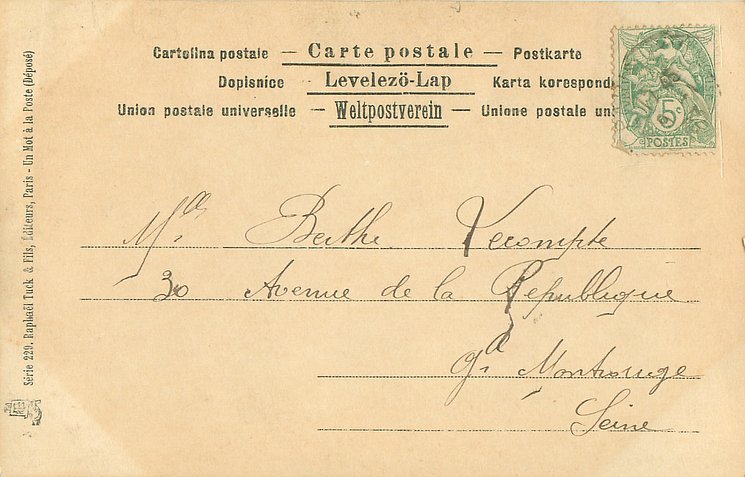 Cartolina postale — Carte postale — Postkarte
Dopisnice — Levelező-Lap — Karta korespond
Union postale universelle — Weltpostverein — Unione postale un
5c
POSTES
Mlle Berthe Lecompte
30 Avenue de la République
Gd Montrouge
Seine
Série 229. Raphaël Tuck & Fils, Éditeurs, Paris - Un Mot à la Poste (Déposé)